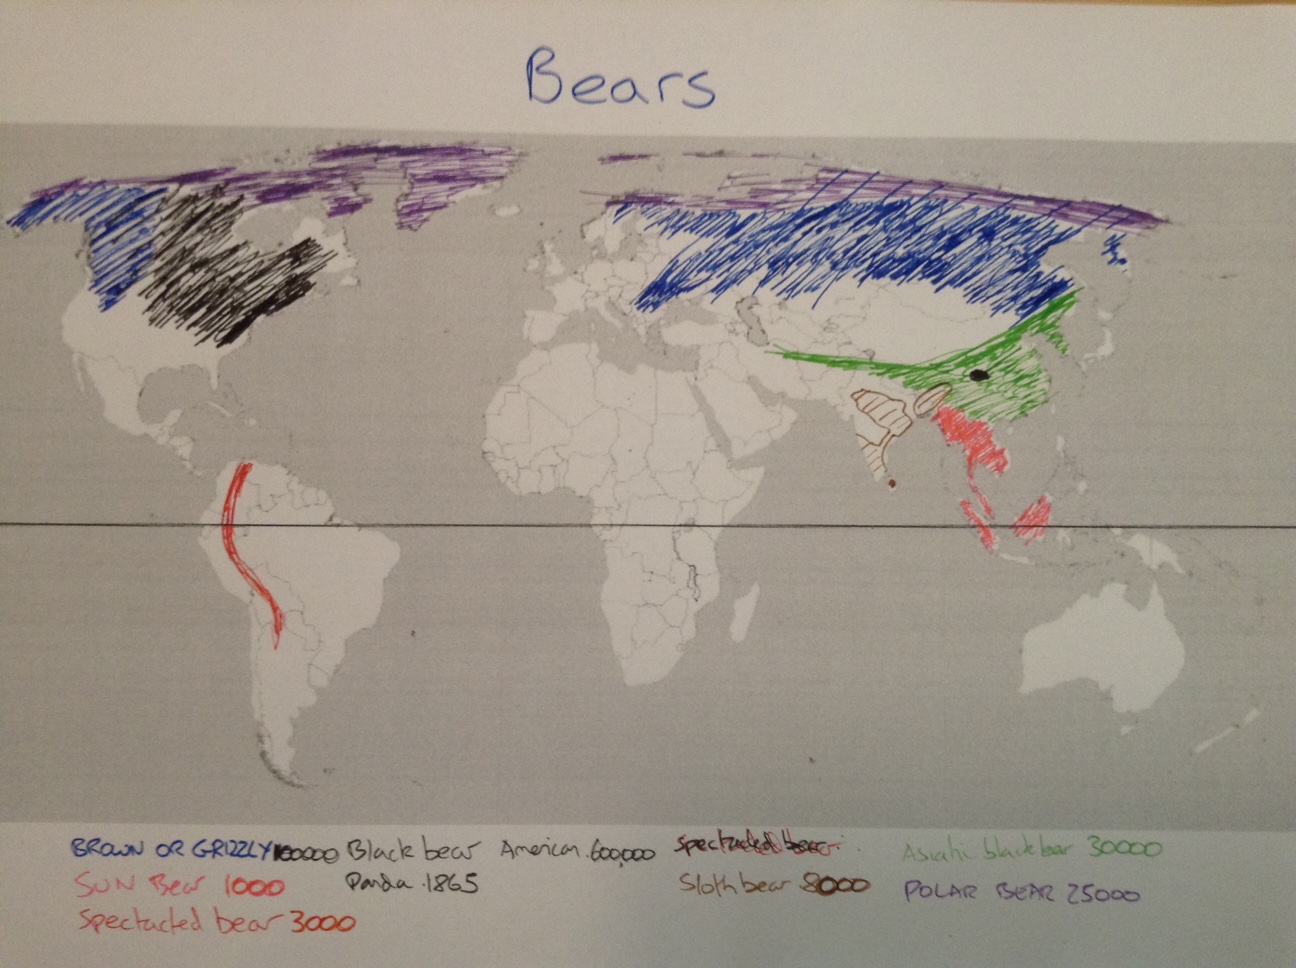 Bears
BROWN OR GRIZZLY 100000 Black bear American 600,000 Spectacled bear Asiatic black bear 30000
SUN Bear 1000 Panda 1865 Sloth bear 8000 POLAR BEAR 25000
Spectacled bear 3000